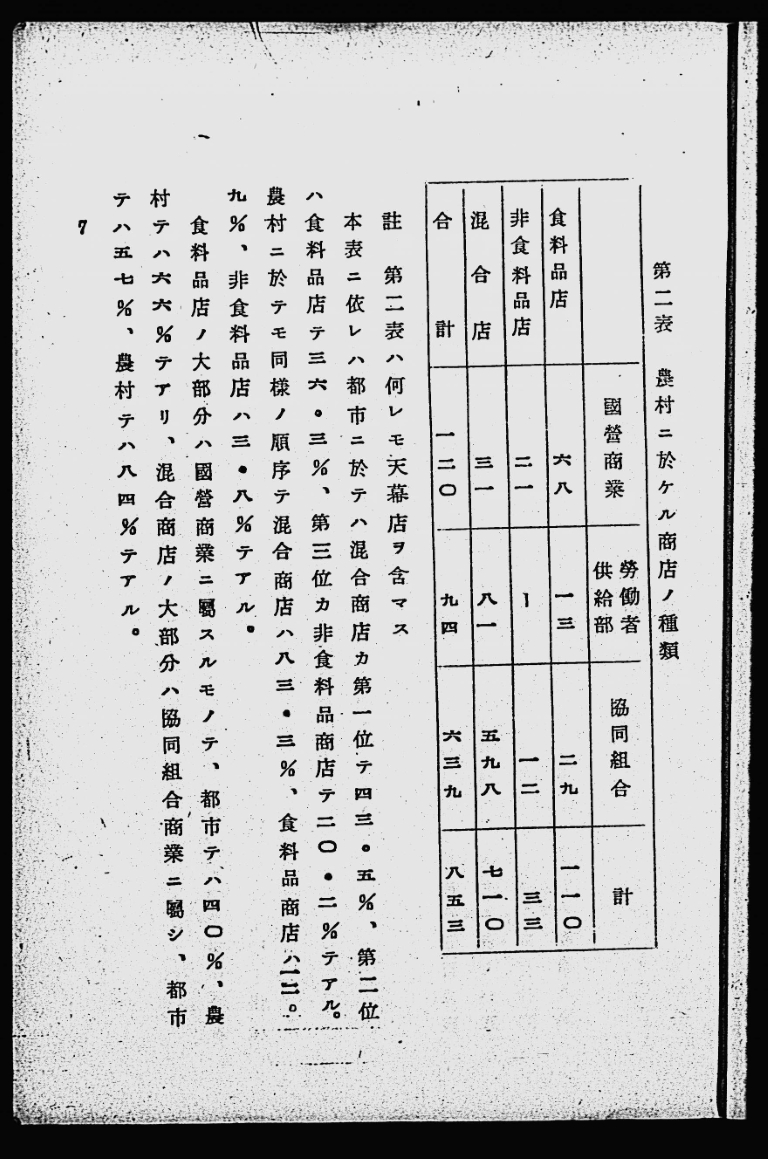 第二表　農村ニ於ケル商店ノ種類
國營商業
勞働者
供給部
協同組合
計
食料品店　六八　一三　二九　一一〇
非食料品店　二一　ー　一二　三三
混合店　三一　八一　五九八　七一〇
合計　一二〇　九四　六三九　八五三
註　第二表ハ何レモ天幕店ヲ含マス
本表ニ依レハ都市ニ於テハ混合商店カ第一位テ四三。五％、第二位
ハ食料品店テ三六。三％、第三位カ非食料品商店テ二〇・二％テアル。
農村ニ於テモ同樣ノ順序テ混合商店ハ八三・三％、食料品商店ハ一二。
九％、非食料品店ハ三・八％テアル。
食料品店ノ大部分ハ國營商業ニ屬スルモノテ、都市テハ四〇％、農
村テハ六六％テアリ、混合商店ノ大部分ハ協同組合商業ニ屬シ、都市
テハ五七％、農村テハ八四％テアル。
7